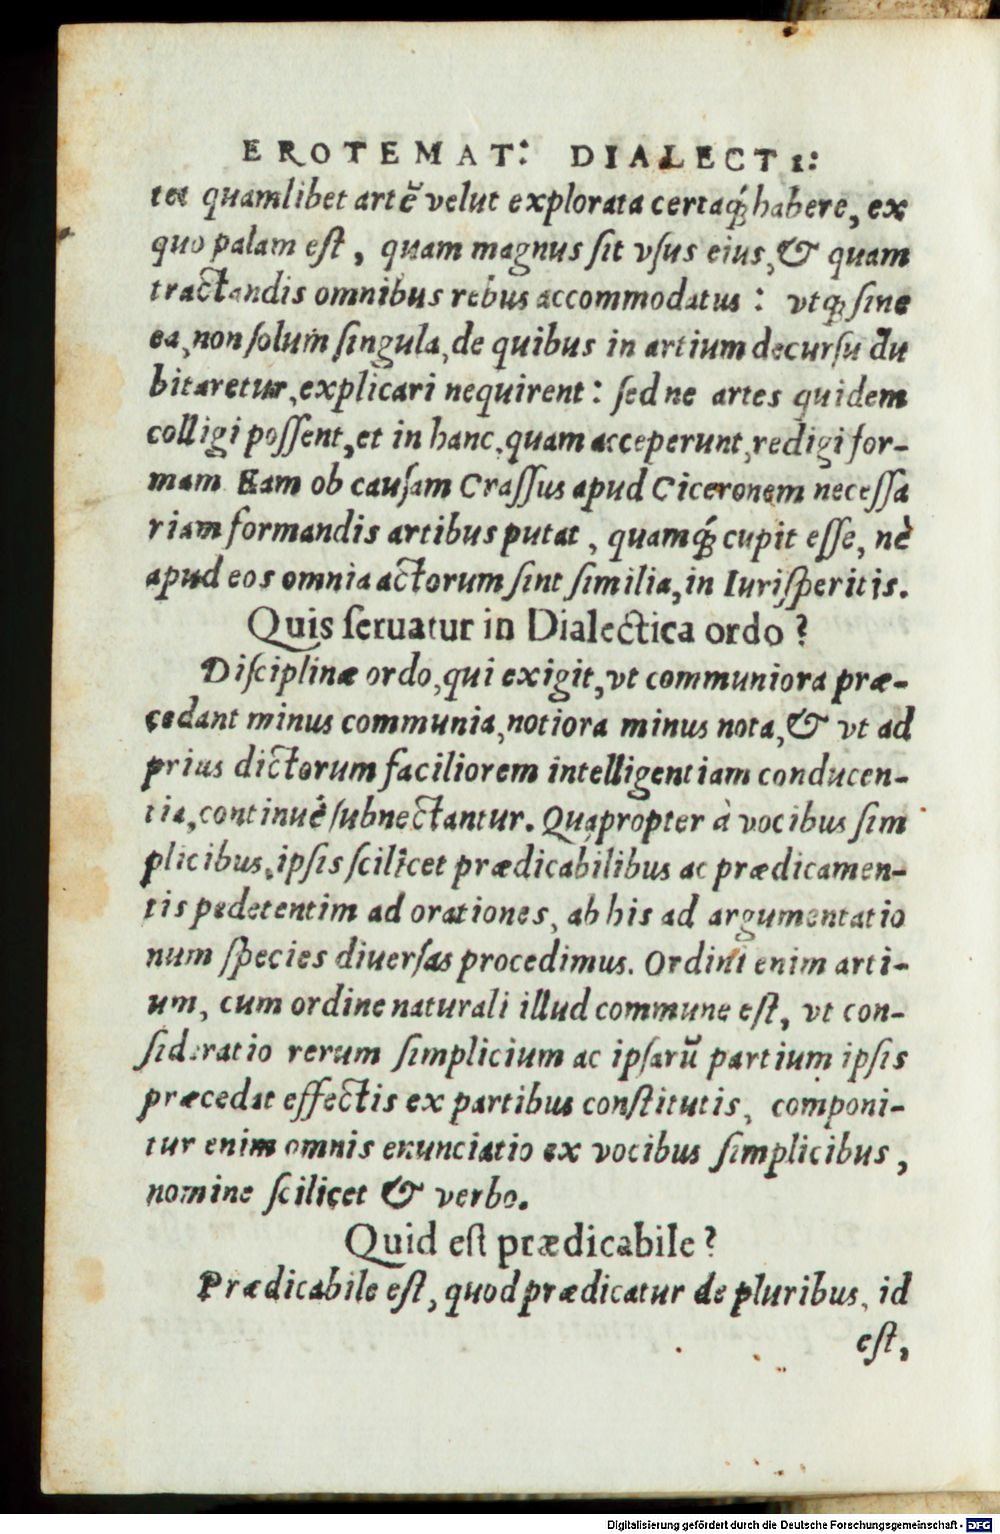 EROTEMAT: DIALECTI:
tet quamlibet artẽ velut explorata certaq́; habere, ex
quo palam eſt, quam magnus ſit vſus eius, & quam
tractandis omnibus rebus accommodatus: vtq; ſine
ea, non ſolum ſingula, de quibus in artium decurſu du
bitaretur, explicari nequirent: ſed ne artes quidem
colligi poſſent, et in hanc, quam acceperunt, redigi for-
mam Eam ob cauſam Craſſus apud Ciceronem neceſſa
riam formandis artibus putat, quamq́; cupit eſſe, nè
apud eos omnia actorum ſint ſimilia, in Iuriſperitis.
Quis ſeruatur in Dialectica ordo?
Diſciplinæ ordo, qui exigit, vt communiora præ-
cedant minus communia, notiora minus nota, & vt ad
prius dictorum faciliorem intelligentiam conducen-
tia, continué ſubnectantur. Quapropter à vocibus ſim
plicibus, ipſis ſcilicet prædicabilibus ac prædicamen-
tis pedetentim ad orationes, ab his ad argumentatio
num ſpecies diuerſas procedimus. Ordini enim arti-
um, cum ordine naturali illud commune eſt, vt con-
ſideratio rerum ſimplicium ac ipſarũ partium ipſis
præcedat effectis ex partibus conſtitutis, componi-
tur enim omnis enunciatio ex vocibus ſimplicibus,
nomine ſcilicet & verbo.
Quid eſt prædicabile?
Prædicabile eſt, quod prædicatur de pluribus, id
eſt,
Digitalisierung gefördert durch die Deutsche Forschungsgemeinschaft - DFG